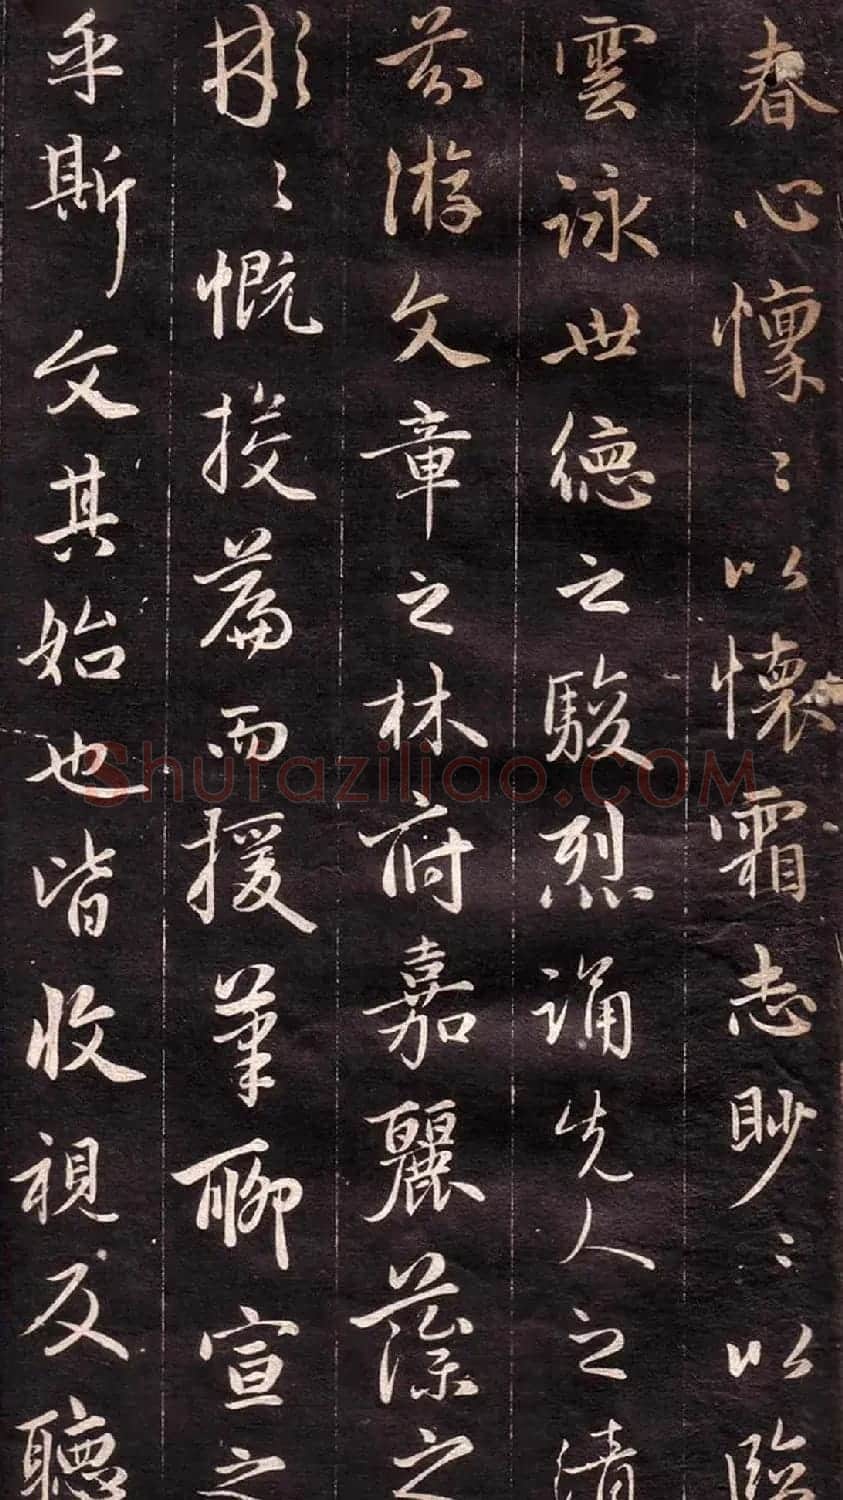 春心懍〻以懷霜志眇〻以臨
雲詠世德之駿烈誦先人之清
芬游文章之林府嘉麗藻之
彬〻慨投篇而援筆聊宣之
乎斯文其始也皆收視反聽
Shufaziliao.COM